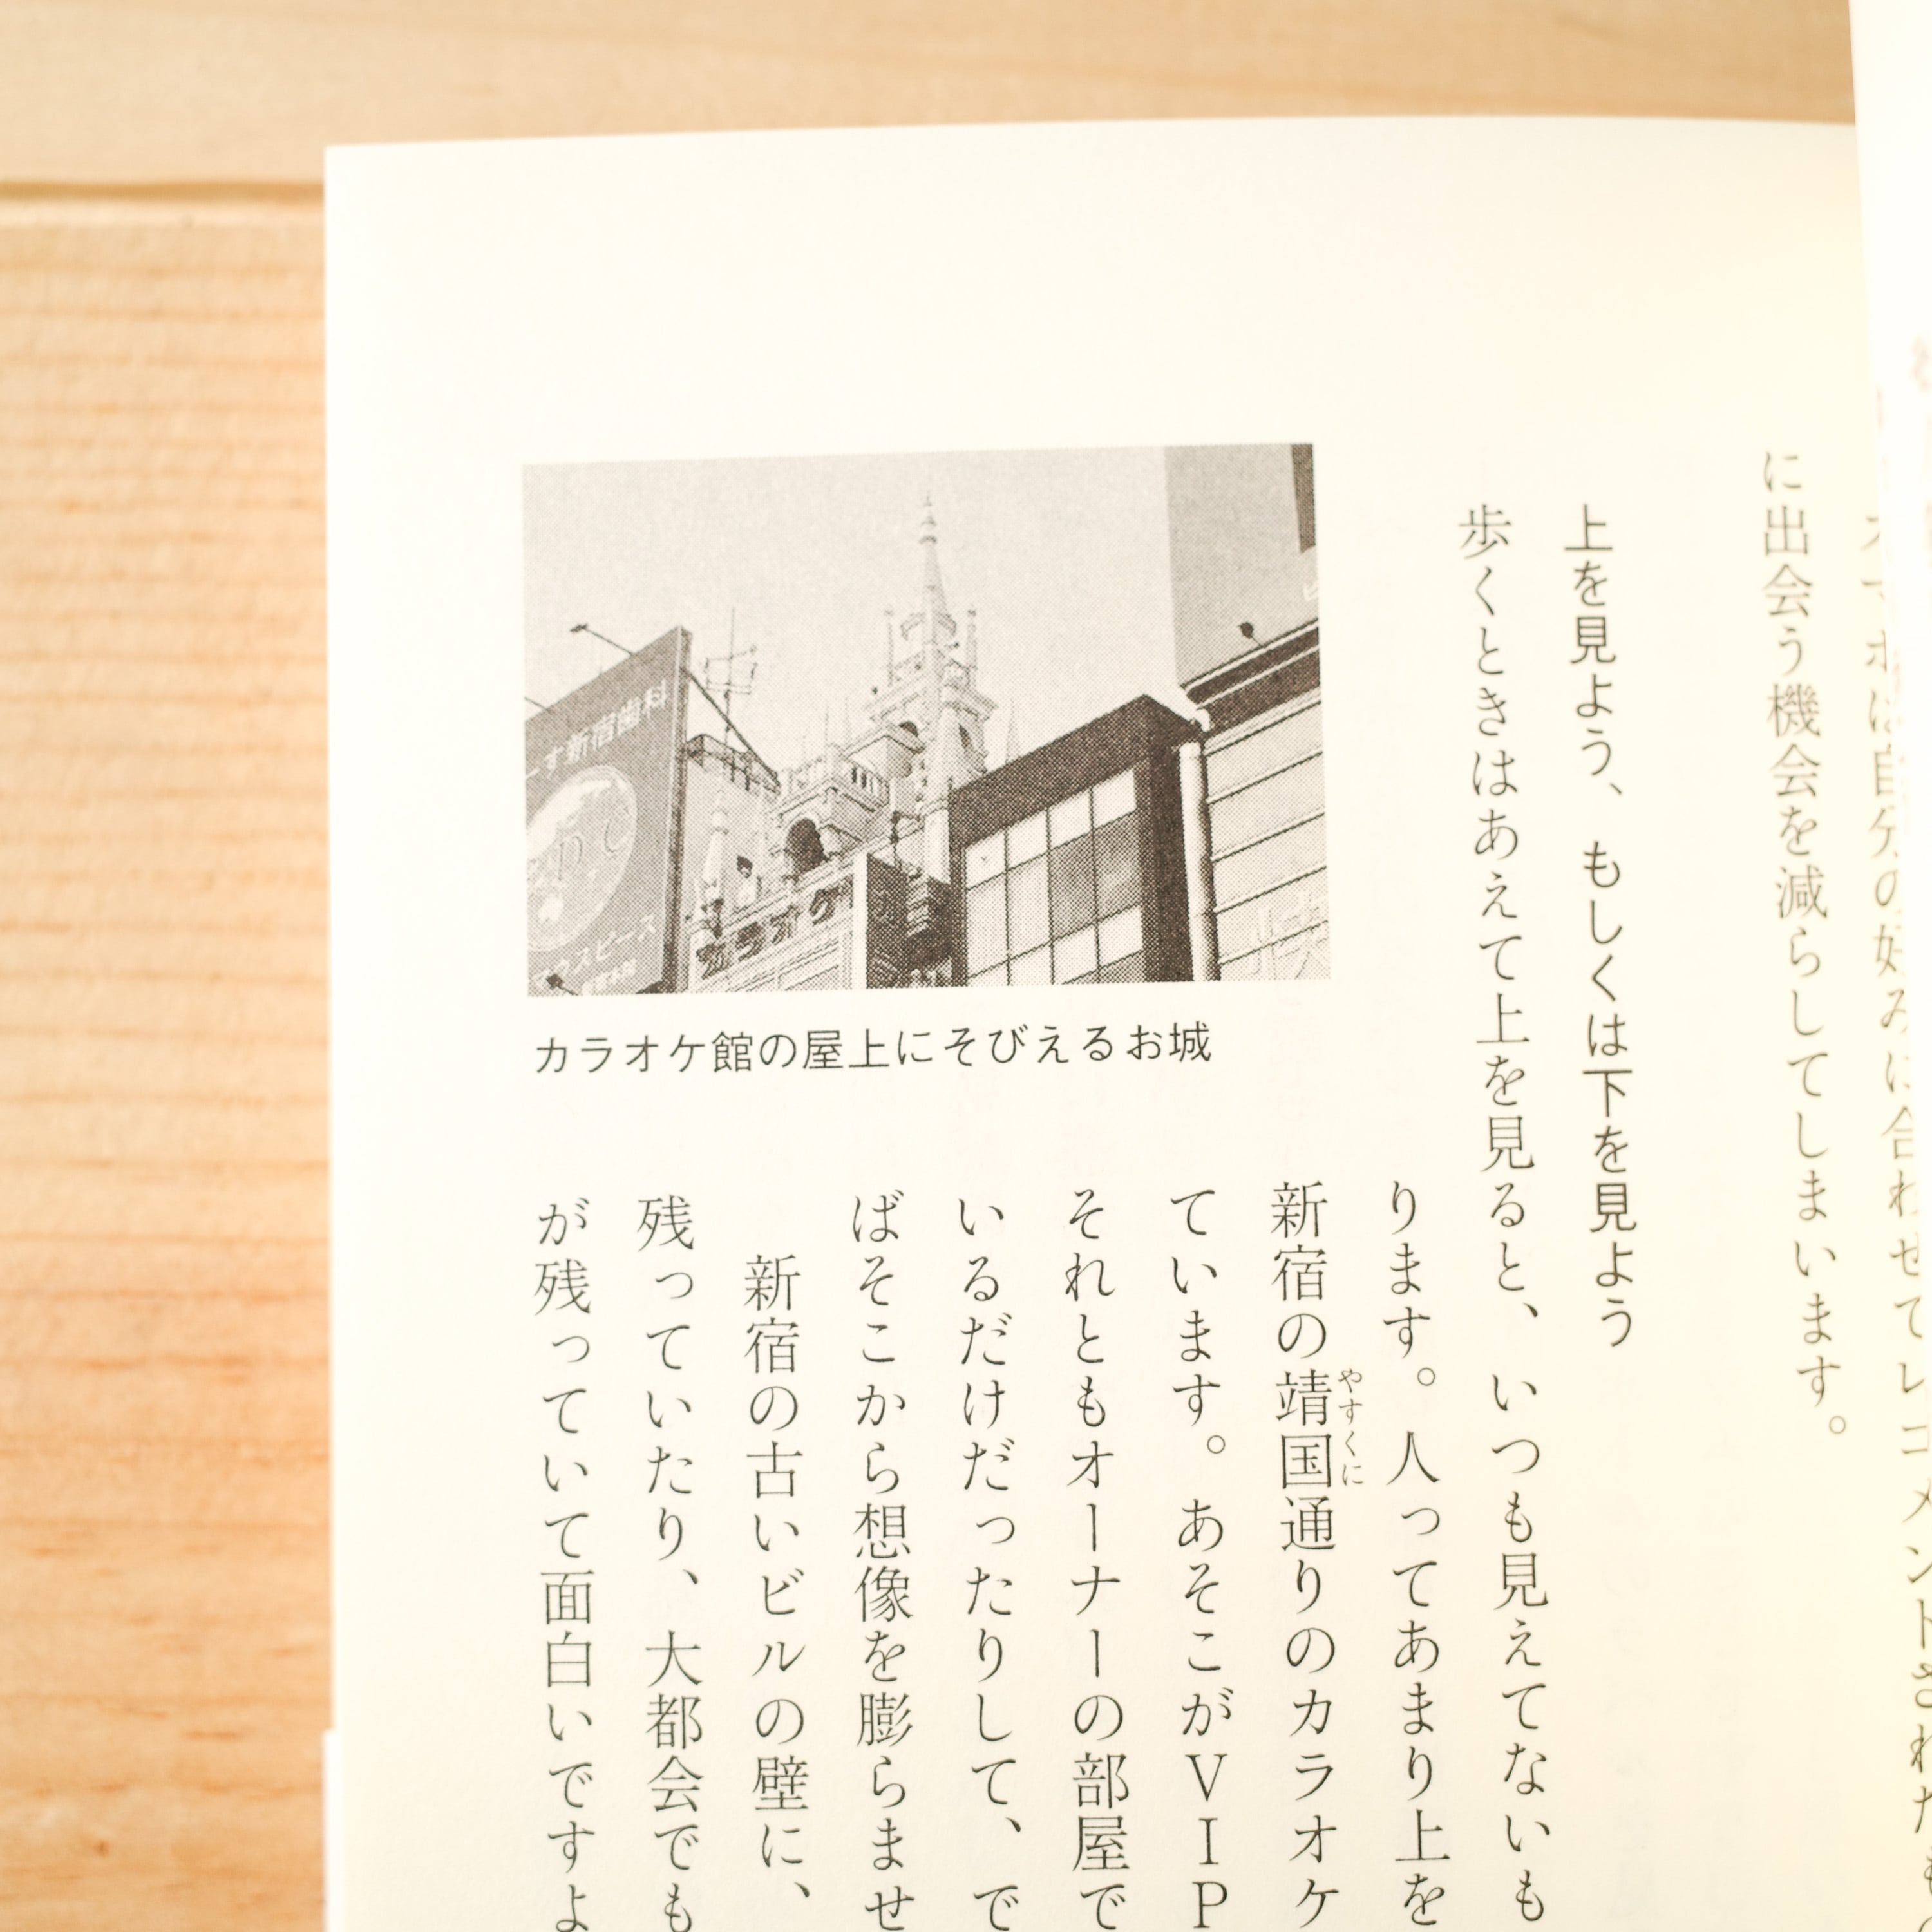 に出会う機会を減らしてしまいます。
上を見よう、もしくは下を見よう
歩くときはあえて上を見ると、いつも見えてないも
ります。人ってあまり上を
新宿の靖国通りのカラオケ
やすくに
ています。あそこがVIP
それともオーナーの部屋で
いるだけだったりして、で
ばそこから想像を膨らませ
新宿の古いビルの壁に、
残っていたり、大都会でも
が残っていて面白いですよ
カラオケ館の屋上にそびえるお城
ーす新宿歯科
カラオケ